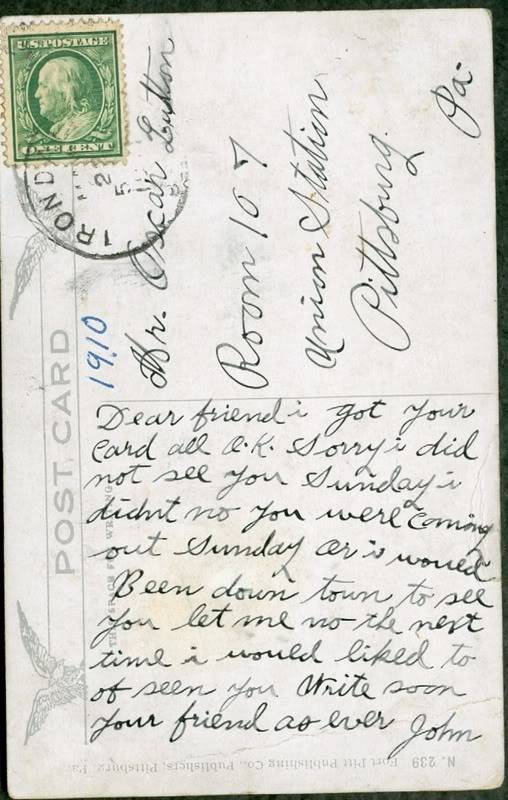 U.S. POSTAGE
ONE CENT
IROND
2
5
1910
Mr. Oscar Lutton
Room 107
Union Station
Pittsburg.
Pa.
POST CARD
THIS SPACE FOR WRITING
Dear friend i got your
Card all O.K. Sorry i did
not see you Sunday i
didnt no you were Coming
out Sunday or i would
Been down town to see
you let me no the next
time i would liked to
of seen you Write soon
your friend as ever John
N. 239 Fort Pitt Publishing Co., Publishers, Pittsburg, Pa.